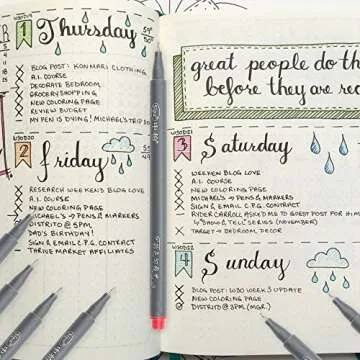 W30D211
1 Thursday 59° 50°
BLOG POST: KONMARI CLOTHING
A.I. COURSE
DECORATE BEDROOM
GROCERY SHOPPING
NEW COLORING PAGE
REVIEW BUDGET
MY PEN IS DYING! MICHAEL'S TRIP
2 friday 55° 49
RESEARCH WEEKEND BLOG LOVE
A.I. COURSE
NEW COLORING PAGE
MICHAEL'S → PENS & MARKERS
DISTRITO @ 5PM
DAD'S BIRTHDAY!
SIGN & EMAIL C.P.G. CONTRACT
THRIVE MARKET AFFILIATES
great people do th
before they are rea
3 Saturday
WEEKEND BLOG LOVE
A.I. COURSE
NEW COLORING PAGE
MICHAEL'S → PENS & MARKERS
SIGN & EMAIL C.P.G. CONTRACT
RIDER CARROLL ASKED ME TO GUEST POST FOR HIM
"SHOW & TELL" SERIES (NOVEMBER)
TARGET → BEDROOM DECOR
4 Sunday
BLOG POST: W30 WEEK 3 UPDATE
NEW COLORING PAGE
DISTRITO @ 3PM (MGR.)